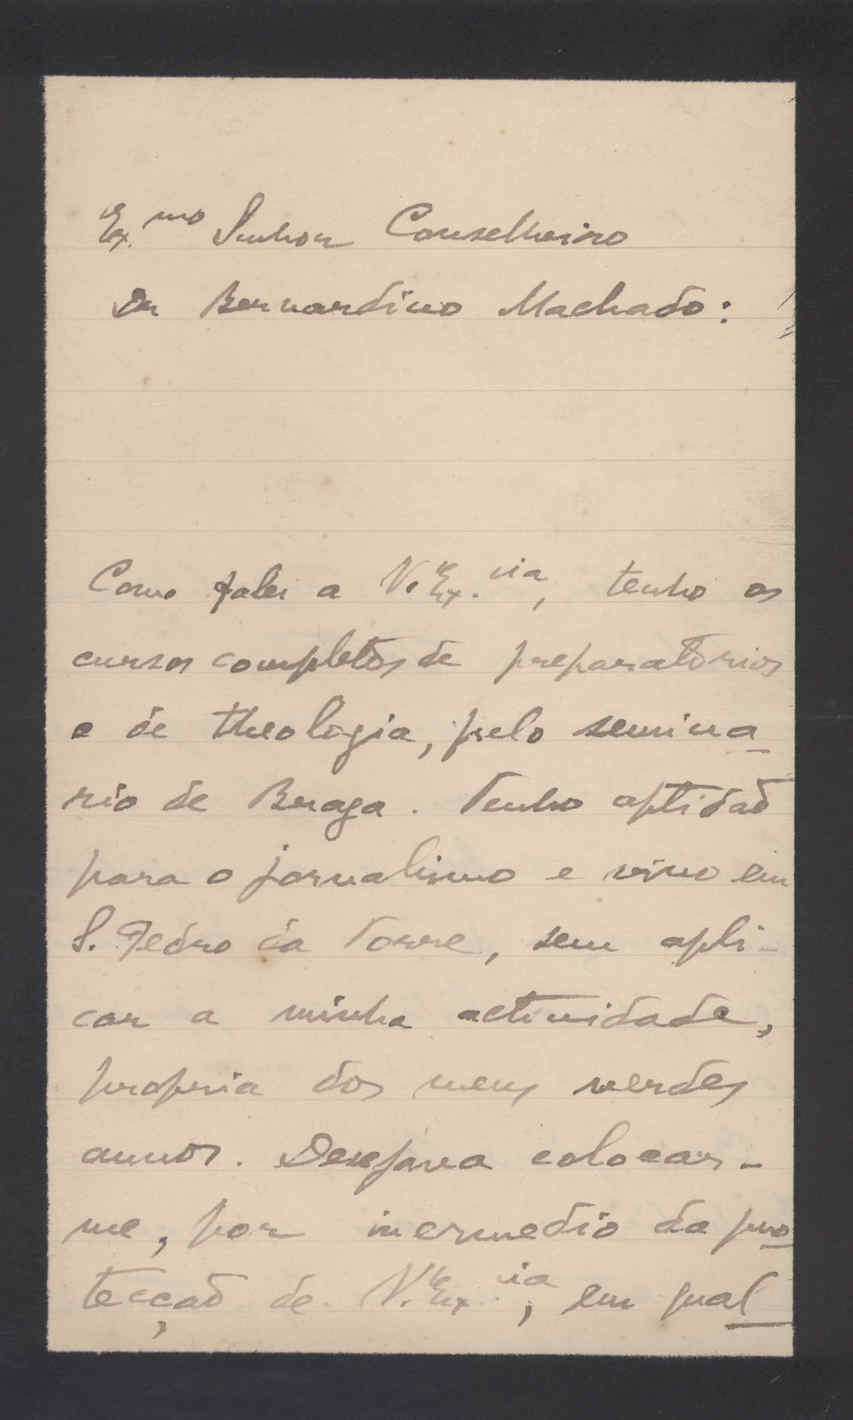 Ex.mo Senhor Conselheiro
Dr Bernardino Machado:
Como falei a V. Ex.cia, tenho os
cursos completos de preparatorios
e de theologia, pelo semina_
rio de Braga. Tenho aptidão
para o jornalismo e vivo em
S. Pedro da Torre, sem apli-
car a minha actividade,
propria dos meus verdes
annos. Desejava colocar-
me, por inermedio da pro_
tecção de V. Ex.cia, em qual_